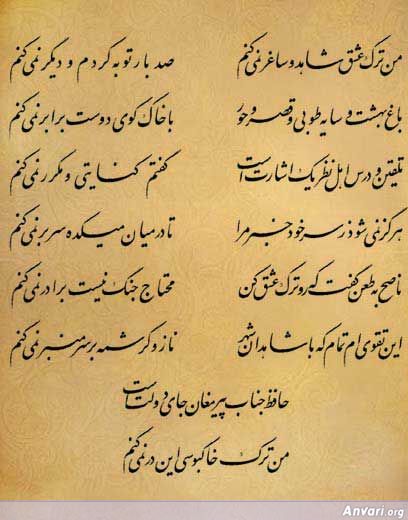 من ترک عشق شاهد و ساغر نمی کنم صد بار توبه کردم و دیگر نمی کنم
باغ بهشت و سایه طوبی و قصر و حور با خاک کوی دوست برابر نمی کنم
تلقین و درس اهل نظر یک اشارت است گفتم کنایتی و مکرر نمی کنم
هرگز نمی شود ز سر خود خبر مرا تا در میان میکده سر بر نمی کنم
ناصح به طعن گفت که رو ترک عشق کن محتاج جنگ نیست برادر نمی کنم
این تقوی ام تمام که با شاهدان شهر ناز و کرشمه بر سر منبر نمی کنم
حافظ جناب پیر مغان جای دولت است
من ترک خاکبوسی این در نمی کنم
Anvari.org